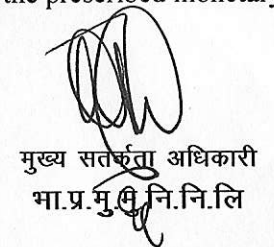 the prescribed monetary
मुख्य सतर्कता अधिकारी
भा.प्र.मु.मु.नि.नि.लि